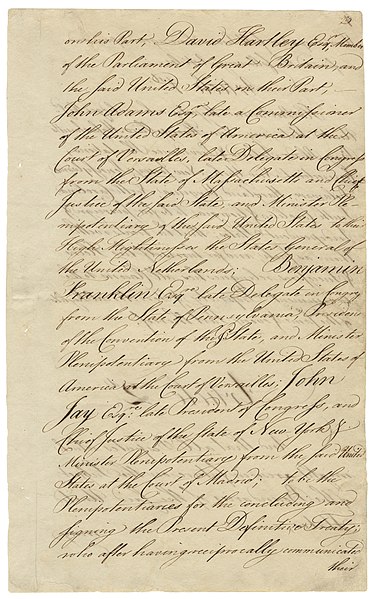 on his Part, David Hartley Esqr., Member
of the Parliament of Great Britain, and
the said United States on their Part, —
John Adams Esqr., late a Commissioner
of the United States of America at the
Court of Versailles, late Delegate in Congress
from the State of Massachusetts and Chief
Justice of the said State, and Minister Ple-
nipotentiary of the said United States to their
High Mightinesses the States General of
the United Netherlands; Benjamin
Franklin Esqre. late Delegate in Congress
from the State of Pennsylvania, President
of the Convention of the sd. State, and Minister
Plenipotentiary from the United States of
America at the Court of Versailles; John
Jay Esqre. late President of Congress, and
Chief Justice of the State of New York &
Minister Plenipotentiary from the said United
States at the Court of Madrid; to be the
Plenipotentiaries for the concluding and
signing the Present Definitive Treaty;
who after having reciprocally communicated
their